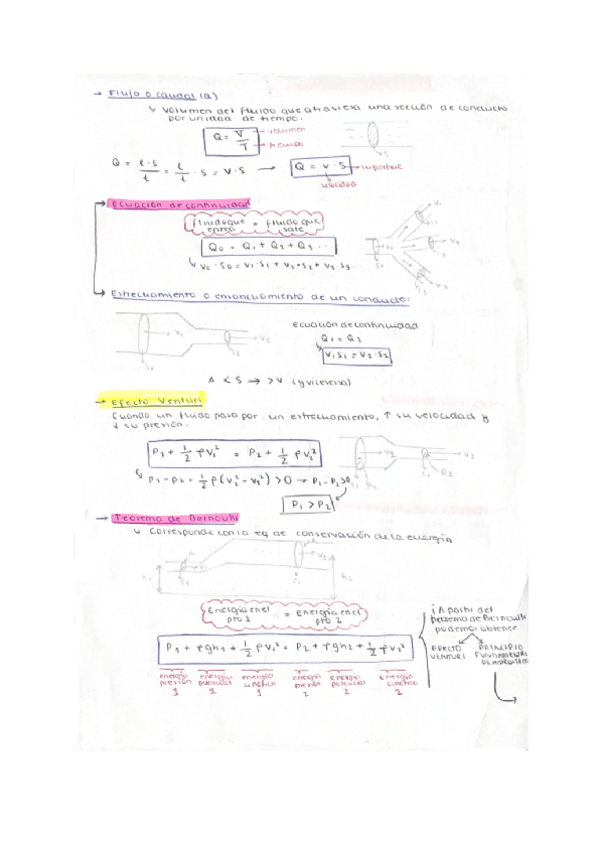 → Flujo o caudal (Q)
↳ Volumen del fluido que atraviesa una sección de conducto
por unidad de tiempo.
Q = V/T volumen tiempo
Q = l·S/t = l/t · S = V·S → Q = v·S superficie
velocidad
Ecuación de continuidad
fluido que entra = fluido que sale
Q₀ = Q₁ + Q₂ + Q₃ ...
↳ v₀·S₀ = v₁·S₁ + v₂·S₂ + v₃·S₃...
Estrechamiento o ensanchamiento de un conducto:
ecuación de continuidad
Q₁ = Q₂
v₁S₁ = v₂·S₂
A < S → > V (y viceversa)
→ Efecto Venturi
Cuando un fluido pasa por un estrechamiento, ↑ su velocidad y
↓ su presión.
P₁ + 1/2 ρv₁² = P₂ + 1/2 ρv₂²
↳ P₁ - P₂ = 1/2 ρ(v₂² - v₁²) > 0 → P₁ - P₂ > 0
P₁ > P₂
→ Teorema de Bernoulli
↳ Corresponde con la eq de conservación de la energía
h₁ h₂
Energía en el pto 1 = energía en el pto 2
P₁ + ρgh₁ + 1/2 ρv₁² = P₂ + ρgh₂ + 1/2 ρv₂²
energía presión 1 energía potencial 1 energía cinética 1 energía 2 energía potencial 2 energía cinética 2
¡A partir del
teorema de Bernoulli
podemos obtener
EFECTO VENTURI
PRINCIPIO FUNDAMENTAL